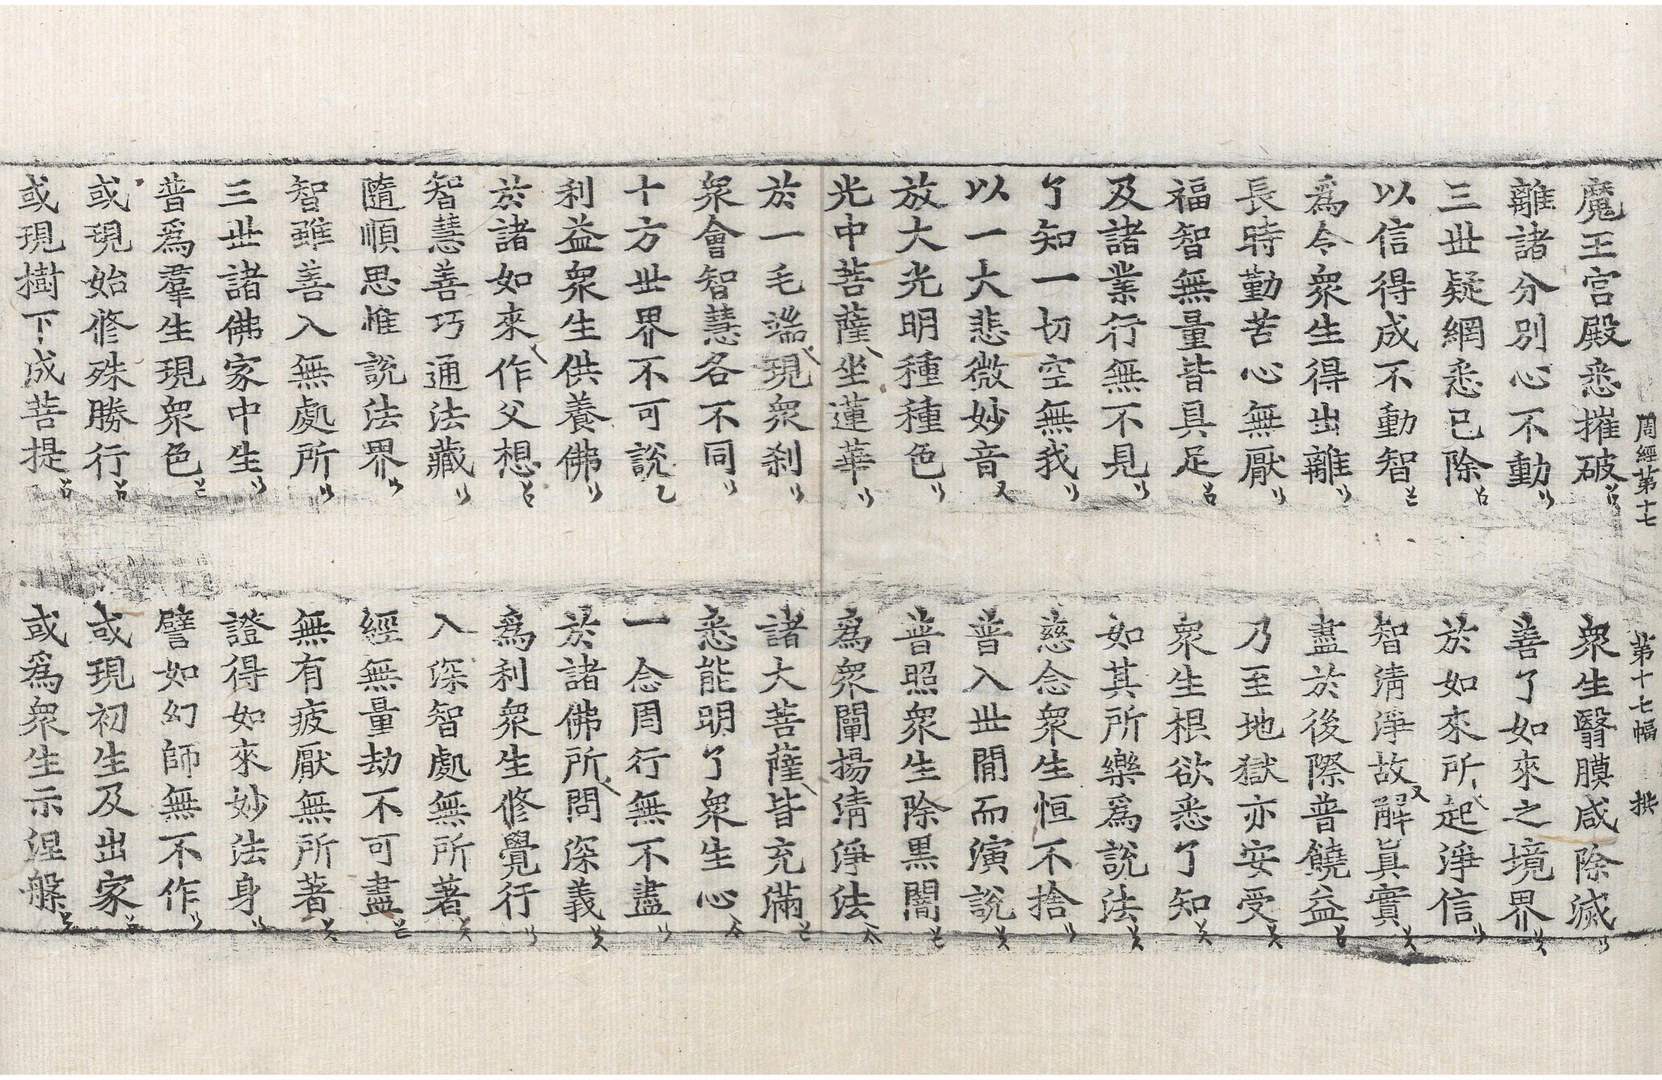 周經第十七　第十七幅
魔王宮殿悉摧破　衆生翳膜咸除滅
離諸分別心不動　善了如來之境界
三世疑網悉已除　於如來所起淨信
以信得成不動智　智淸淨故解眞實
爲令衆生得出離　盡於後際普饒益
長時勤苦心無厭　乃至地獄亦安受
福智無量皆具足　衆生根欲悉了知
及諸業行無不見　如其所樂爲說法
了知一切空無我　慈念衆生恒不捨
以一大悲微妙音　普入世間而演說
放大光明種種色　普照衆生除黑闇
光中菩薩坐蓮華　爲衆闡揚淸淨法
於一毛端現衆刹　諸大菩薩皆充滿
衆會智慧各不同　悉能明了衆生心
十方世界不可說　一念周行無不盡
利益衆生供養佛　於諸佛所問深義
於諸如來作父想　爲利衆生修覺行
智慧善巧通法藏　入深智處無所著
隨順思惟說法界　經無量劫不可盡
智雖善入無處所　無有疲厭無所著
三世諸佛家中生　證得如來妙法身
普爲羣生現衆色　譬如幻師無不作
或現始修殊勝行　或現初生及出家
或現樹下成菩提　或爲衆生示涅槃